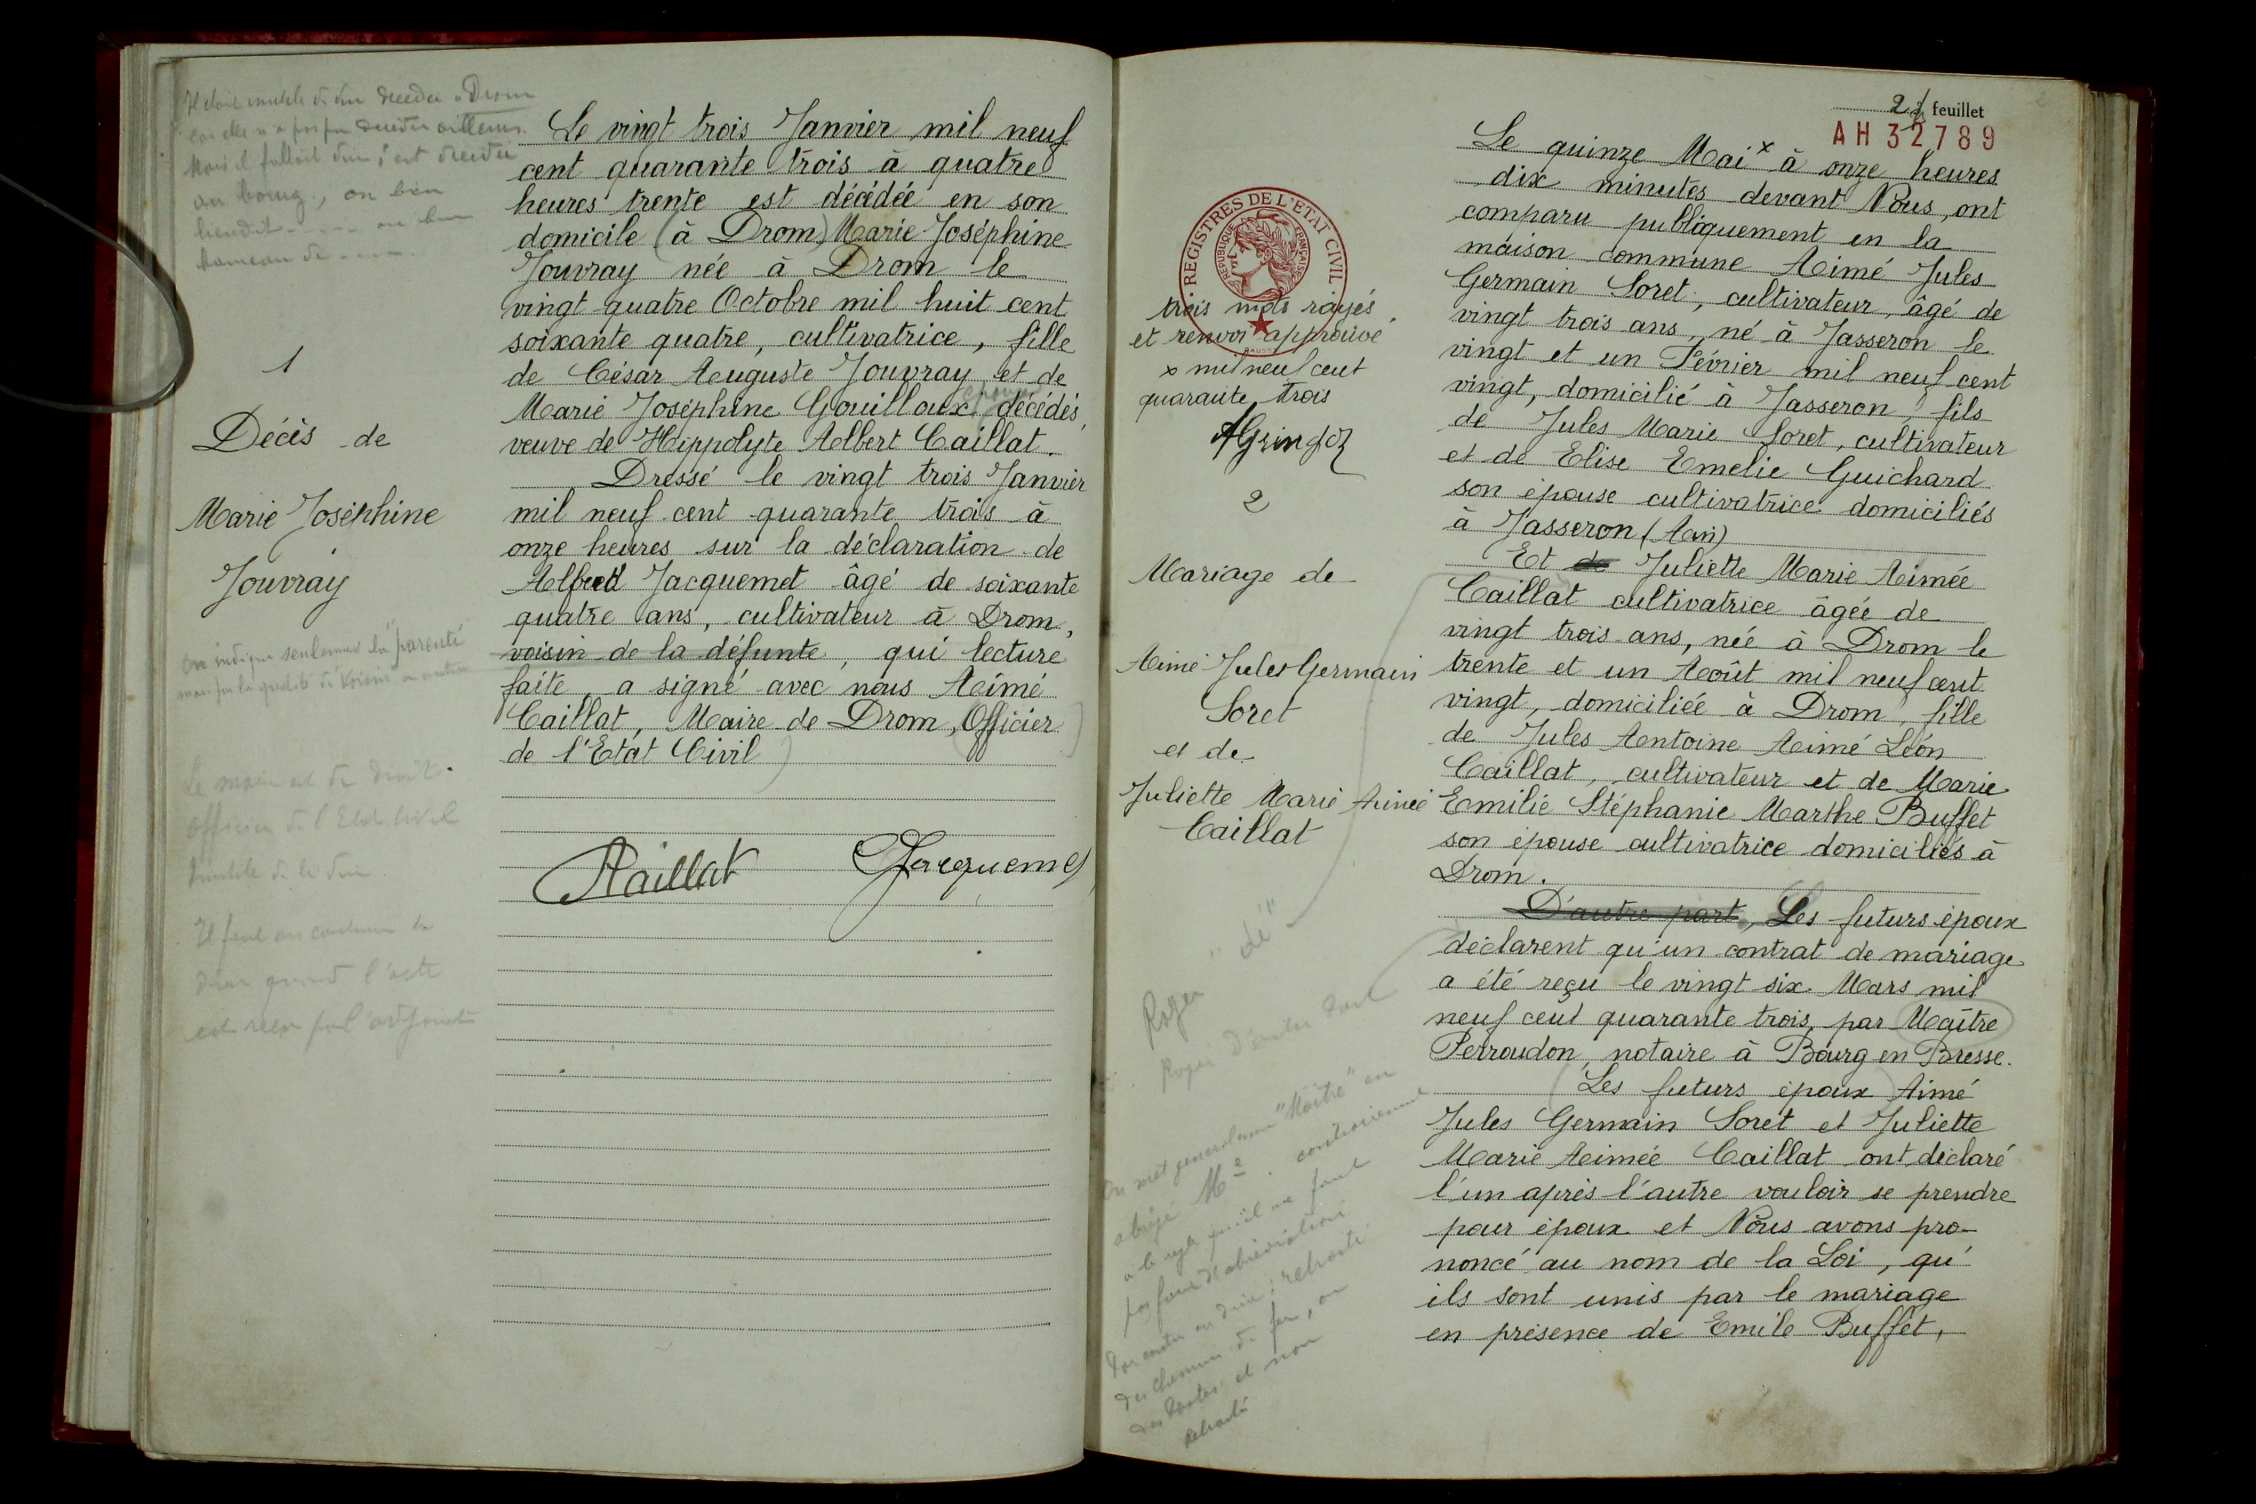 Il était inutile de dire décédée à Drom
car elle n'a pas pu décéder ailleurs.
Mais il fallait dire, est décédée
au bourg, ou bien
lieudit - - - - - ou bien
hameau de - - - -.
1
Décès de
Marie Joséphine
Jouvray
On indique seulement la "parenté
mais pas la qualité de voisin ou autre
Le maire est de droit
Officier de l'Etat Civil
Inutile de le dire.
Il faut au contraire le
dire quand l'acte
est reçu par l'adjoint
Le vingt trois Janvier mil neuf
cent quarante trois à quatre
heures trente est décédée en son
domicile (à Drom) Marie Joséphine
Jouvray née à Drom le
vingt-quatre Octobre mil huit cent
soixante quatre, cultivatrice, fille
de César Auguste Jouvray, et de
Marie Joséphine Gouilloux, époux décédés,
veuve de Hippolyte Albert Caillat.
Dressé le vingt trois Janvier
mil neuf cent quarante trois à
onze heures sur la déclaration de
Alfred Jacquemet âgé de soixante
quatre ans, cultivateur à Drom,
voisin de la défunte, qui lecture
faite, a signé avec nous Aimé
Caillat, Maire de Drom, (Officier
de l'Etat Civil)
ACaillat Jacquemet
2 feuillet
AH 32789
REGISTRES DE L'ETAT CIVIL
REPUBLIQUE FRANÇAISE
trois mots rayés
et renvoi approuvé
x mil neuf cent
quarante trois
2
Mariage de
Aimé Jules Germain
Soret
et de
Juliette Marie Aimée
Caillat
Rayer "de"
Rayer D'autre part
On met généralement "Maître" en
abrégé Me. contrairement
à la règle qu'il ne faut
pas faire d'abréviation
Par contre on dira: retraité
des chemins de fer, ou
des Postes et non
retraité
Le quinze Mai x à onze heures
dix minutes devant Nous, ont
comparu publiquement en la
maison commune Aimé Jules
Germain Soret, cultivateur, âgé de
vingt trois ans, né à Jasseron le
vingt et un Février mil neuf cent
vingt, domicilié à Jasseron, fils
de Jules Marie Soret, cultivateur
et de Elise Emelie Guichard
son épouse cultivatrice domiciliés
à Jasseron (Ain)
Et de Juliette Marie Aimée
Caillat cultivatrice âgée de
vingt trois ans, née à Drom le
trente et un Août mil neuf cent
vingt, domiciliée à Drom, fille
de Jules Antoine Aimé Léon
Caillat, cultivateur et de Marie
Emilie Stéphanie Marthe Buffet
son épouse cultivatrice domiciliés à
Drom.
D'autre part, Les futurs époux
déclarent qu'un contrat de mariage
a été reçu le vingt six Mars mil
neuf cent quarante trois, par Maître
Perroudon, notaire à Bourg en Bresse.
(Les futurs époux) Aimé
Jules Germain Soret et Juliette
Marie Aimée Caillat ont déclaré
l'un après l'autre vouloir se prendre
pour époux et Nous avons pro-
noncé au nom de la Loi, qu'
ils sont unis par le mariage
en présence de Emile Buffet,